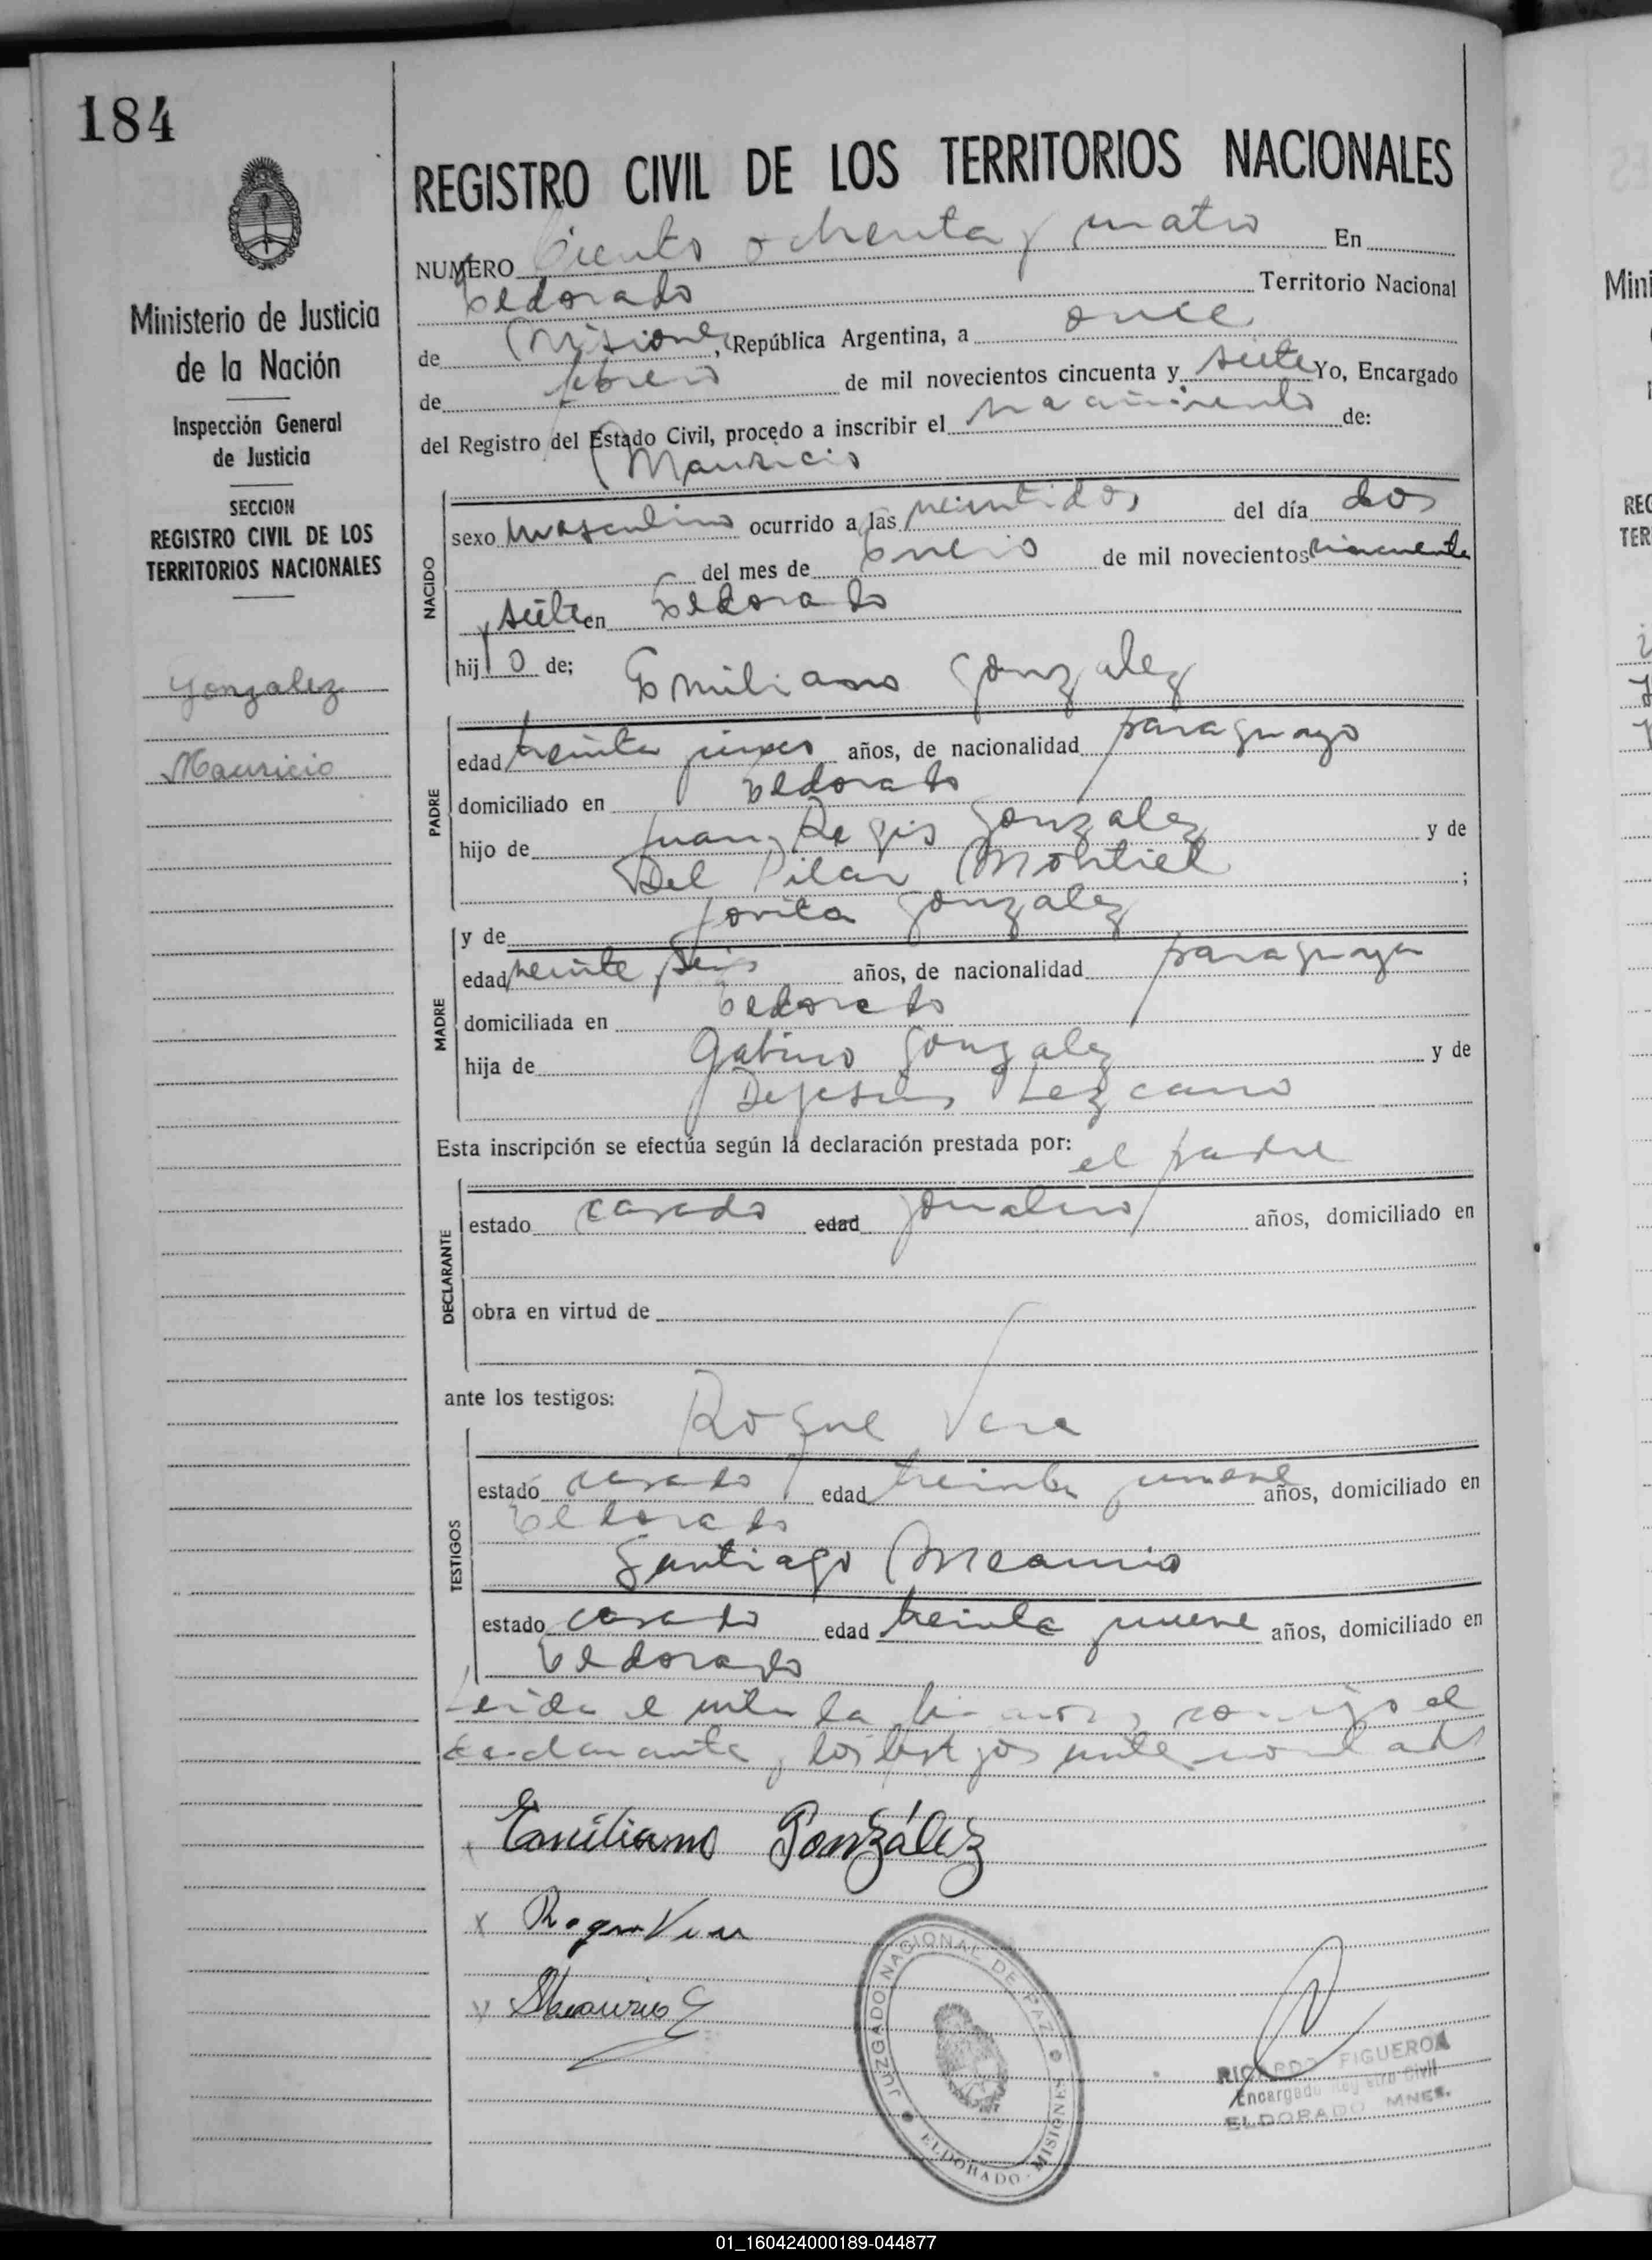 184
REGISTRO CIVIL DE LOS TERRITORIOS NACIONALES
Ministerio de Justicia
de la Nación
Inspección General
de Justicia
SECCION
REGISTRO CIVIL DE LOS
TERRITORIOS NACIONALES
Gonzalez
Mauricio
NUMERO Ciento ochenta y cuatro En
Eldorado Territorio Nacional
de Misiones, República Argentina, a once
de febrero de mil novecientos cincuenta y siete Yo, Encargado
del Registro del Estado Civil, procedo a inscribir el nacimiento de:
Mauricio
NACIDO
sexo masculino ocurrido a las veintidos del día dos
del mes de enero de mil novecientos cincuenta
y siete en Eldorado
hijo de; Emiliano Gonzalez
PADRE
edad treinta años, de nacionalidad paraguayo
domiciliado en Eldorado
hijo de Juan Regis Gonzalez y de
Del Pilar Montiel ;
y de Jovita Gonzalez
MADRE
edad veinte seis años, de nacionalidad paraguaya
domiciliada en Eldorado
hija de Gabino Gonzalez y de
Dejesus Lezcano
Esta inscripción se efectúa según la declaración prestada por: el padre
DECLARANTE
estado casado edad jornalero años, domiciliado en
obra en virtud de
ante los testigos: Roque Vera
TESTIGOS
estado casado edad treinta y nueve años, domiciliado en
Eldorado
Santiago
estado casado edad treinta y nueve años, domiciliado en
Eldorado
Leida el acta la conmigo el
declarante y los testigos
Emiliano González
x Roque Vera
JUZGADO NACIONAL DE PAZ
ELDORADO - MISIONES
RICARDO FIGUEROA
Encargado Registro Civil
ELDORADO MNES.
01_160424000189-044877